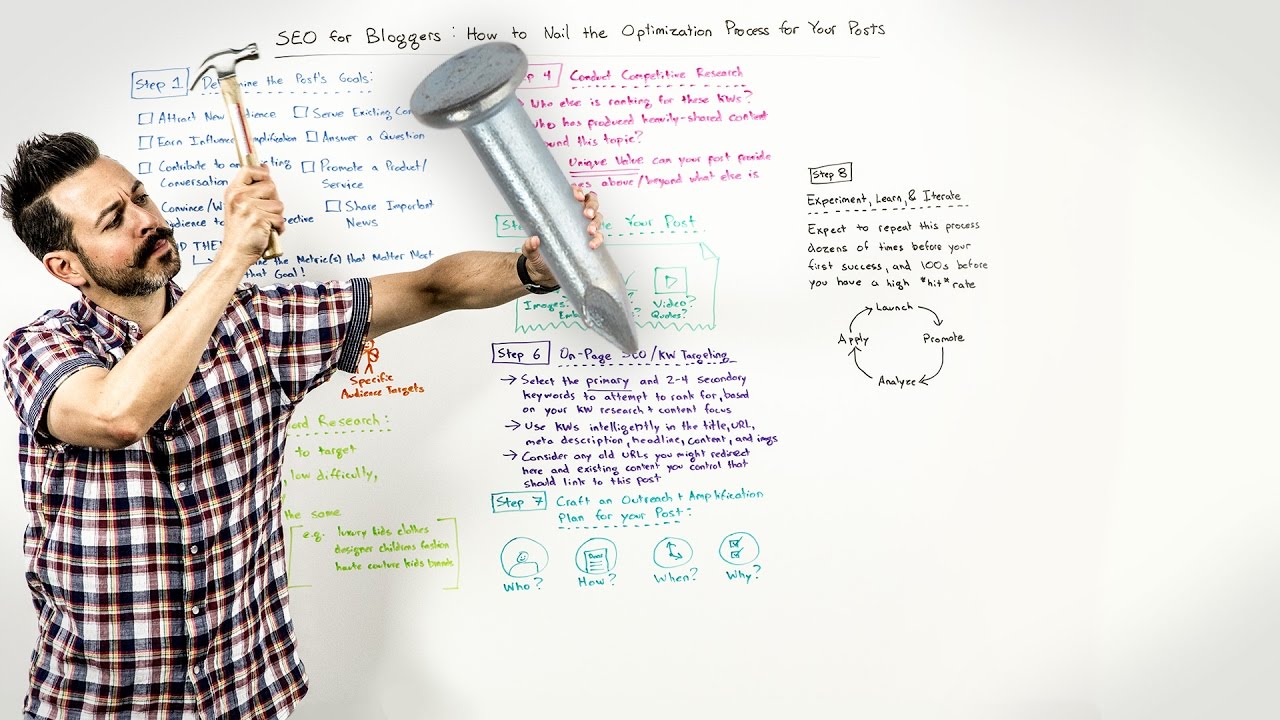 SEO for Bloggers: How to Nail the Optimization Process for Your Posts
Step 1
the Post's Goals:
Attract New
Serve Existing
Earn
Answer a Question
Contribute to
Conversation
Promote a Product/
Service
Share Important
News
the Metric(s) that Matter Most
that Goal!
Specific
Audience Targets
Research:
to target
low difficulty,
the same
e.g. luxury kids clothes
designer childrens fashion
haute couture kids brands
4 Conduct Competitive Research
Who else is ranking for these KWs?
Who has produced heavily-shared content
this topic?
Unique Value can your post provide
above/beyond what else is
Your Post
Images?
Video?
Quotes?
Step 6 On-Page SEO/KW Targeting
→ Select the primary and 2-4 secondary
keywords to attempt to rank for, based
on your KW research + content focus
→ Use KWs intelligently in the title, URL,
meta description, headline, content, and imgs
→ Consider any old URLs you might redirect
here and existing content you control that
should link to this post
Step 7 Craft an Outreach + Amplification
Plan for your Post:
Who?
How?
When?
Why?
Step 8
Experiment, Learn, & Iterate
Expect to repeat this process
dozens of times before your
first success, and 100s before
you have a high "hit" rate
Launch
Apply
Promote
Analyze